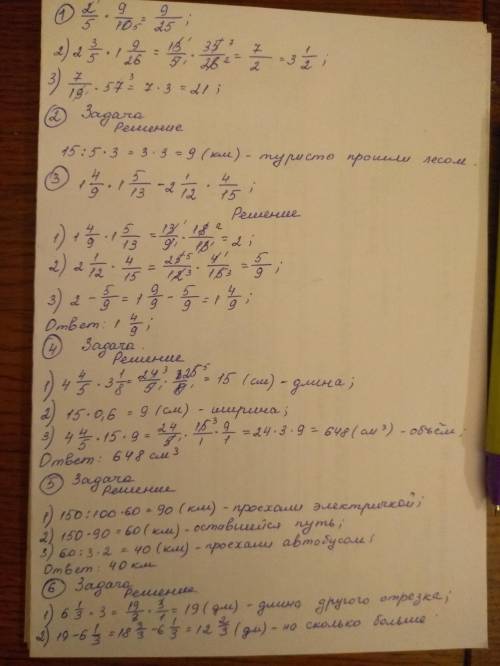 ① 2/5 · 9/10 = 9/25;
2) 2 3/5 · 1 9/26 = 13/5 · 35/26 = 7/2 = 3 1/2;
3) 7/19 · 57 = 7 · 3 = 21;
② Задача
Решение
15 : 5 · 3 = 3 · 3 = 9 (км) - туристо прошли лесом.
③ 1 4/9 · 1 5/13 - 2 1/12 · 4/15;
Решение
1) 1 4/9 · 1 5/13 = 13/9 · 18/13 = 2;
2) 2 1/12 · 4/15 = 25/12 · 4/15 = 5/9;
3) 2 - 5/9 = 1 9/9 - 5/9 = 1 4/9;
Ответ: 1 4/9;
④ Задача.
Решение
1) 4 4/5 · 3 1/8 = 24/5 · 25/8 = 15 (см) - длина;
2) 15 · 0,6 = 9 (см) - ширина;
3) 4 4/5 · 15 · 9 = 24/5 · 15/1 · 9/1 = 24 · 3 · 9 = 648 (см³) - объём;
Ответ: 648 см³
⑤ Задача
Решение
1) 150 : 100 · 60 = 90 (км) - проехали электричкой;
2) 150 - 90 = 60 (км) - оставшейся путь;
3) 60 : 3 · 2 = 40 (км) - проехали автобусом;
Ответ: 40 км
⑥ Задача
Решение
1) 6 1/3 · 3 = 19/3 · 3/1 = 19 (дм) - длина другого отрезка;
2) 19 - 6 1/3 = 18 3/3 - 6 1/3 = 12 2/3 (дм) - на сколько больше